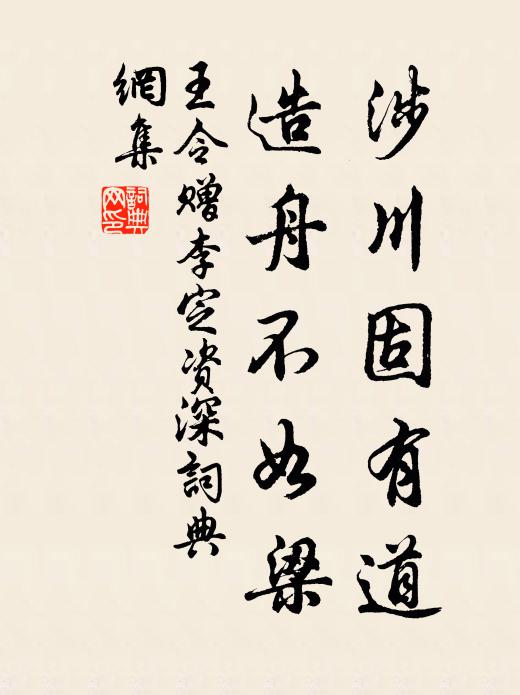 涉川固有道
造舟不如梁
王令赠李定资深詞典
網集
詞典
网印